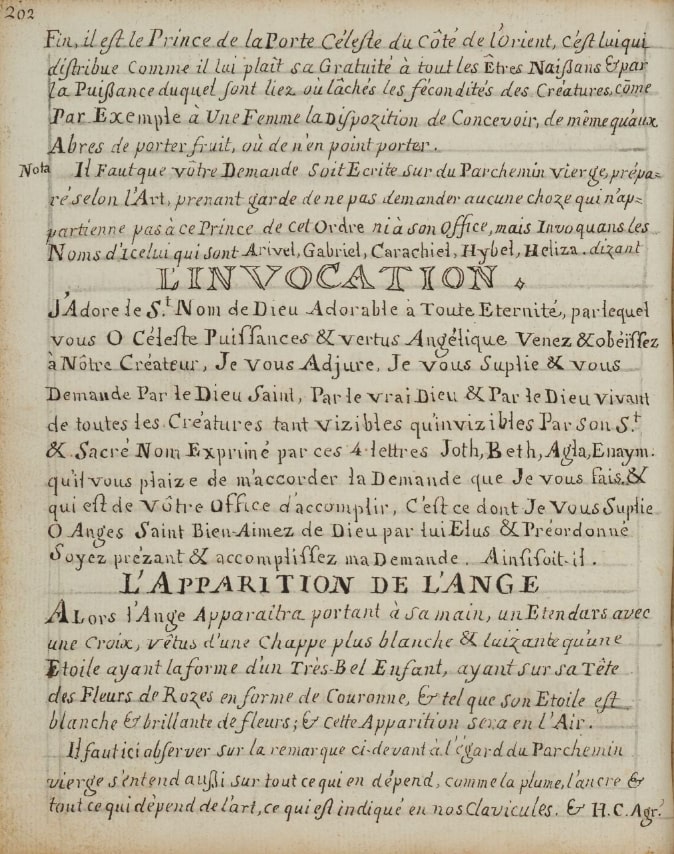 202
Fin, il est le Prince de la Porte Céleste du Côté de l'Orient, c'est lui qui
distribue Comme il lui plaît sa Gratuité à tout les Êtres Naißans & par
la Puißance duquel sont liez où lâchés les fécondités des Créatures, côme
Par Exemple à Une Femme la Dispozition de Concevoir, de même qu'aux
Abres de porter fruit, où de n'en point porter.
Nota Il Faut que vôtre Demande soit Ecrite sur du Parchemin vierge, prépa=
ré selon l'Art, prenant garde de ne pas demander aucune choze qui n'ap=
partienne pas à ce Prince de cet Ordre ni à son Office, mais Invoquans les
Noms d'icelui qui sont Arivel, Gabriel, Carachiel, Hybel, Heliza. dizant
L'INVOCATION.
J'Adore le S.t Nom de Dieu Adorable à Toute Eternité, par lequel
vous O Céleste Puissances & vertus Angélique Venez & obéissez
à Nôtre Créateur, Je vous Adjure, Je vous Suplie & vous
Demande Par le Dieu Saint, Par le vrai Dieu & Par le Dieu vivant
de toutes les Créatures tant vizibles qu'invizibles Par son S.t
& Sacré Nom Exprimé par ces 4 lettres Joth, Beth, Agla, Enaym.
qu'il vous plaize de m'accorder la Demande que Je vous fais. &
qui est de vôtre Office d'accomplir, C'est ce dont Je Vous Suplie
O Anges Saint Bien-Aimez de Dieu par lui Elus & Préordonné
Soyez prézant & accomplissez ma Demande. Ainsi soit-il.
L'APPARITION DE L'ANGE
ALors l'Ange Apparaitra portant à sa main, un Etendars avec
une Croix, vêtus d'une Chappe plus blanche & luizante qu'une
Etoile ayant la forme d'un Très-Bel Enfant, ayant sur sa Tête
des Fleurs de Rozes en forme de Couronne, & tel que son Etoile est
blanche & brillante de fleurs; & cette Apparition sera en l'Air.
Il faut ici observer sur la remarque ci-devant à l'égard du Parchemin
vierge s'entend außi sur tout ce qui en dépend, comme la plume, l'ancre &
tout ce qui dépend de l'art, ce qui est indiqué en nos Clavicules. & H. C. Agr.